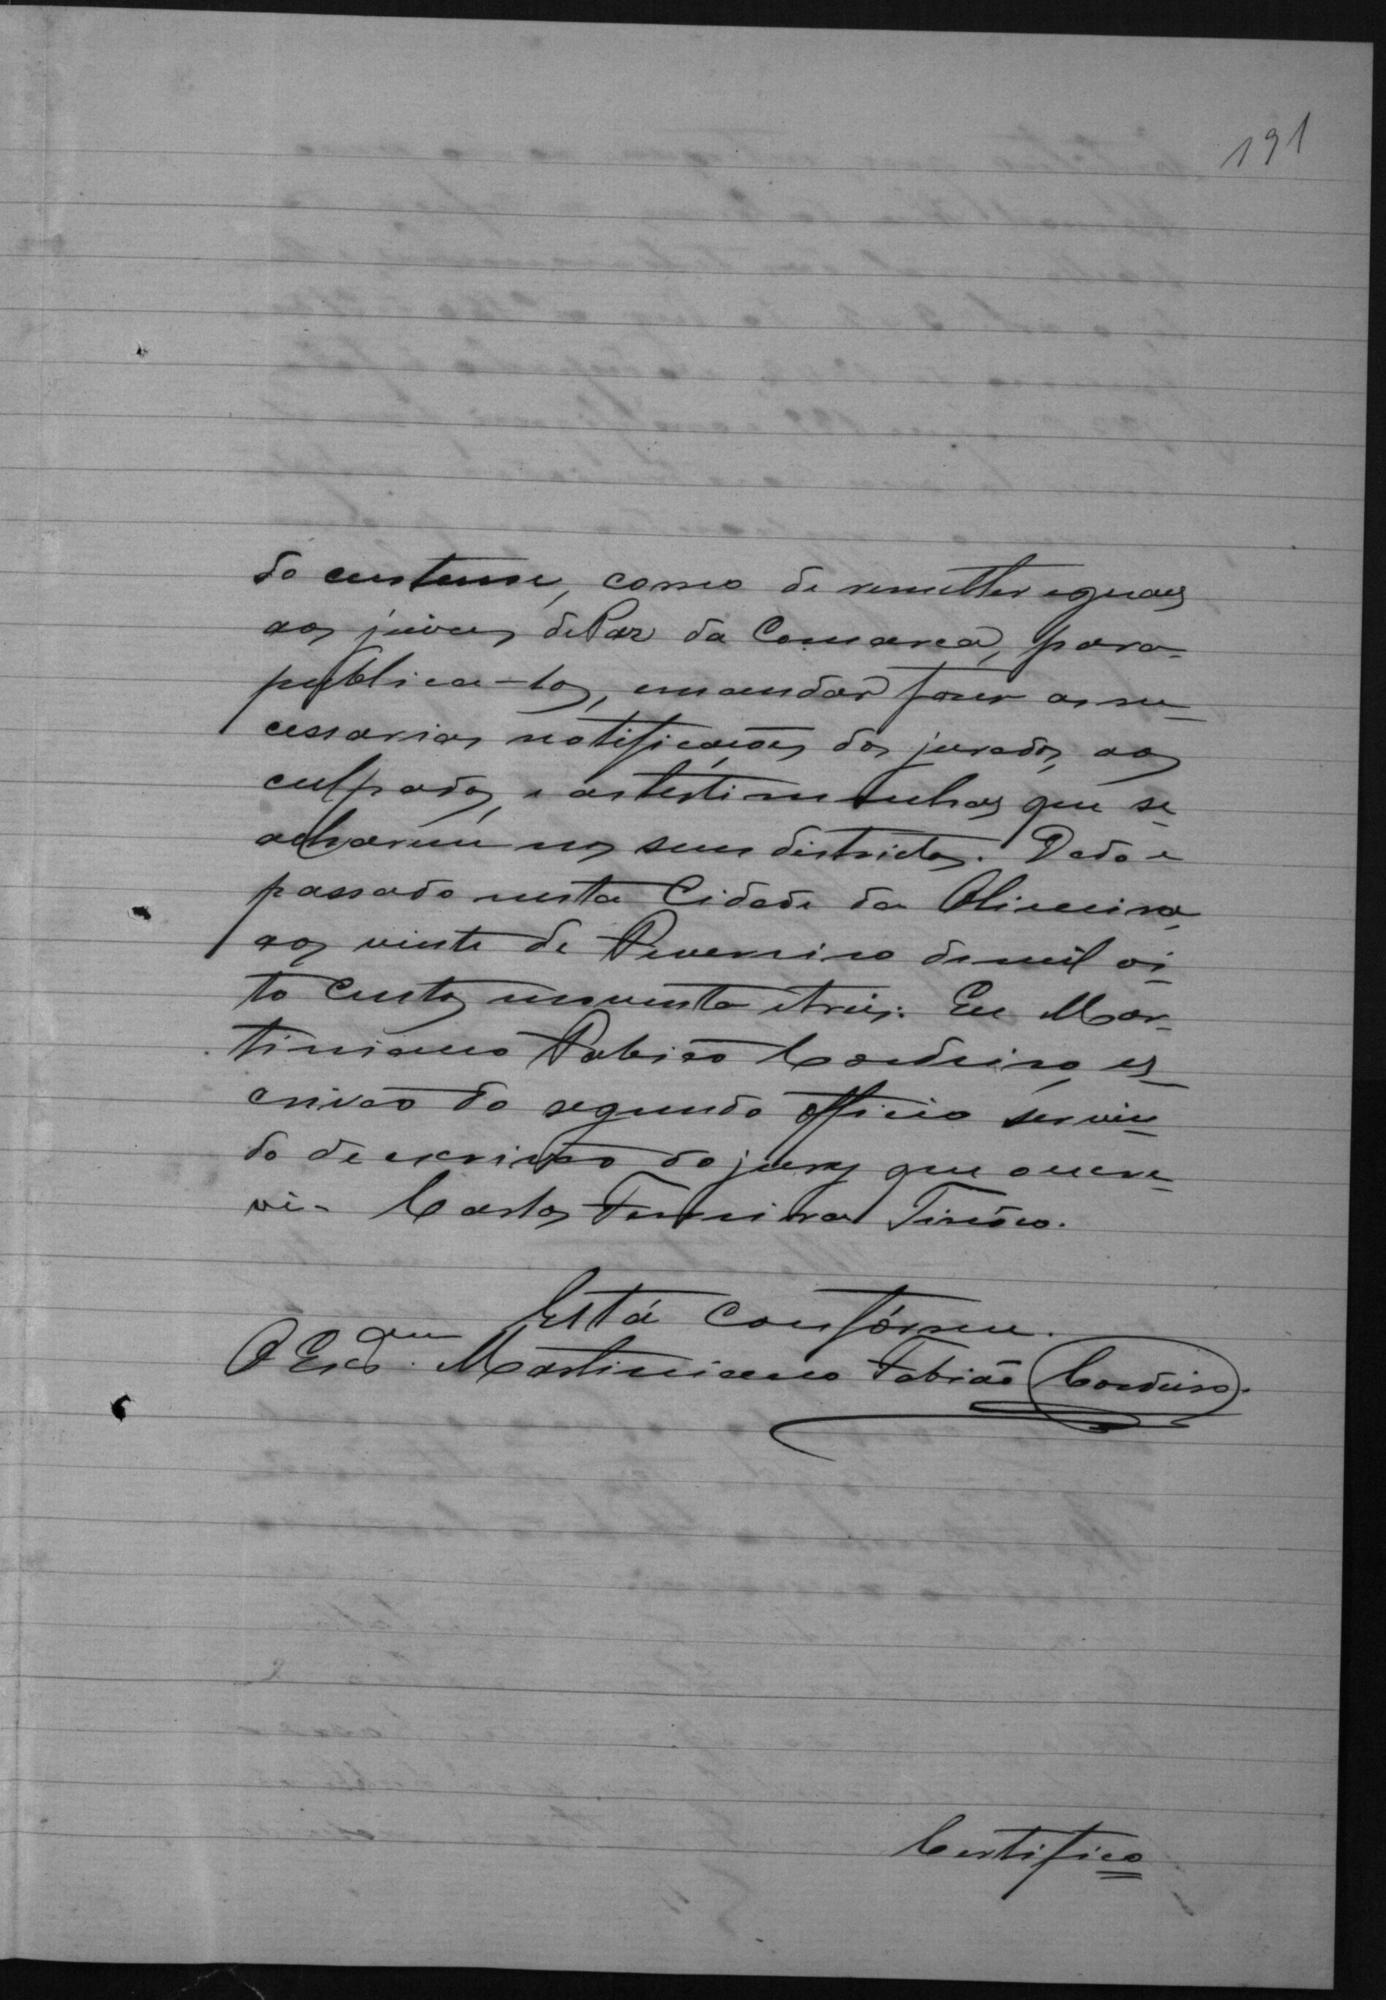 191
do custume, como de remetter eguaes
aos juizes de Paz da Comarca, para
publica-los, e mandar fazer as ne-
cessarias notificações dos jurados, aos
culpados, e as testimunhas que se
acharem nos seus districtos. Dado e
passado nesta Cidade da Oliveira,
aos vinte de Fevereiro de mil oi-
to centos noventa e tres. Eu Mar-
tiniano Fabião Cordeiro, es-
crivão do segundo officio servin-
do de escrivão do jury que o escre-
vi. Carlos Ferreira Tinôco.
Está confórme.
O Escram. Martiniano Fabião Cordeiro.
Certifico